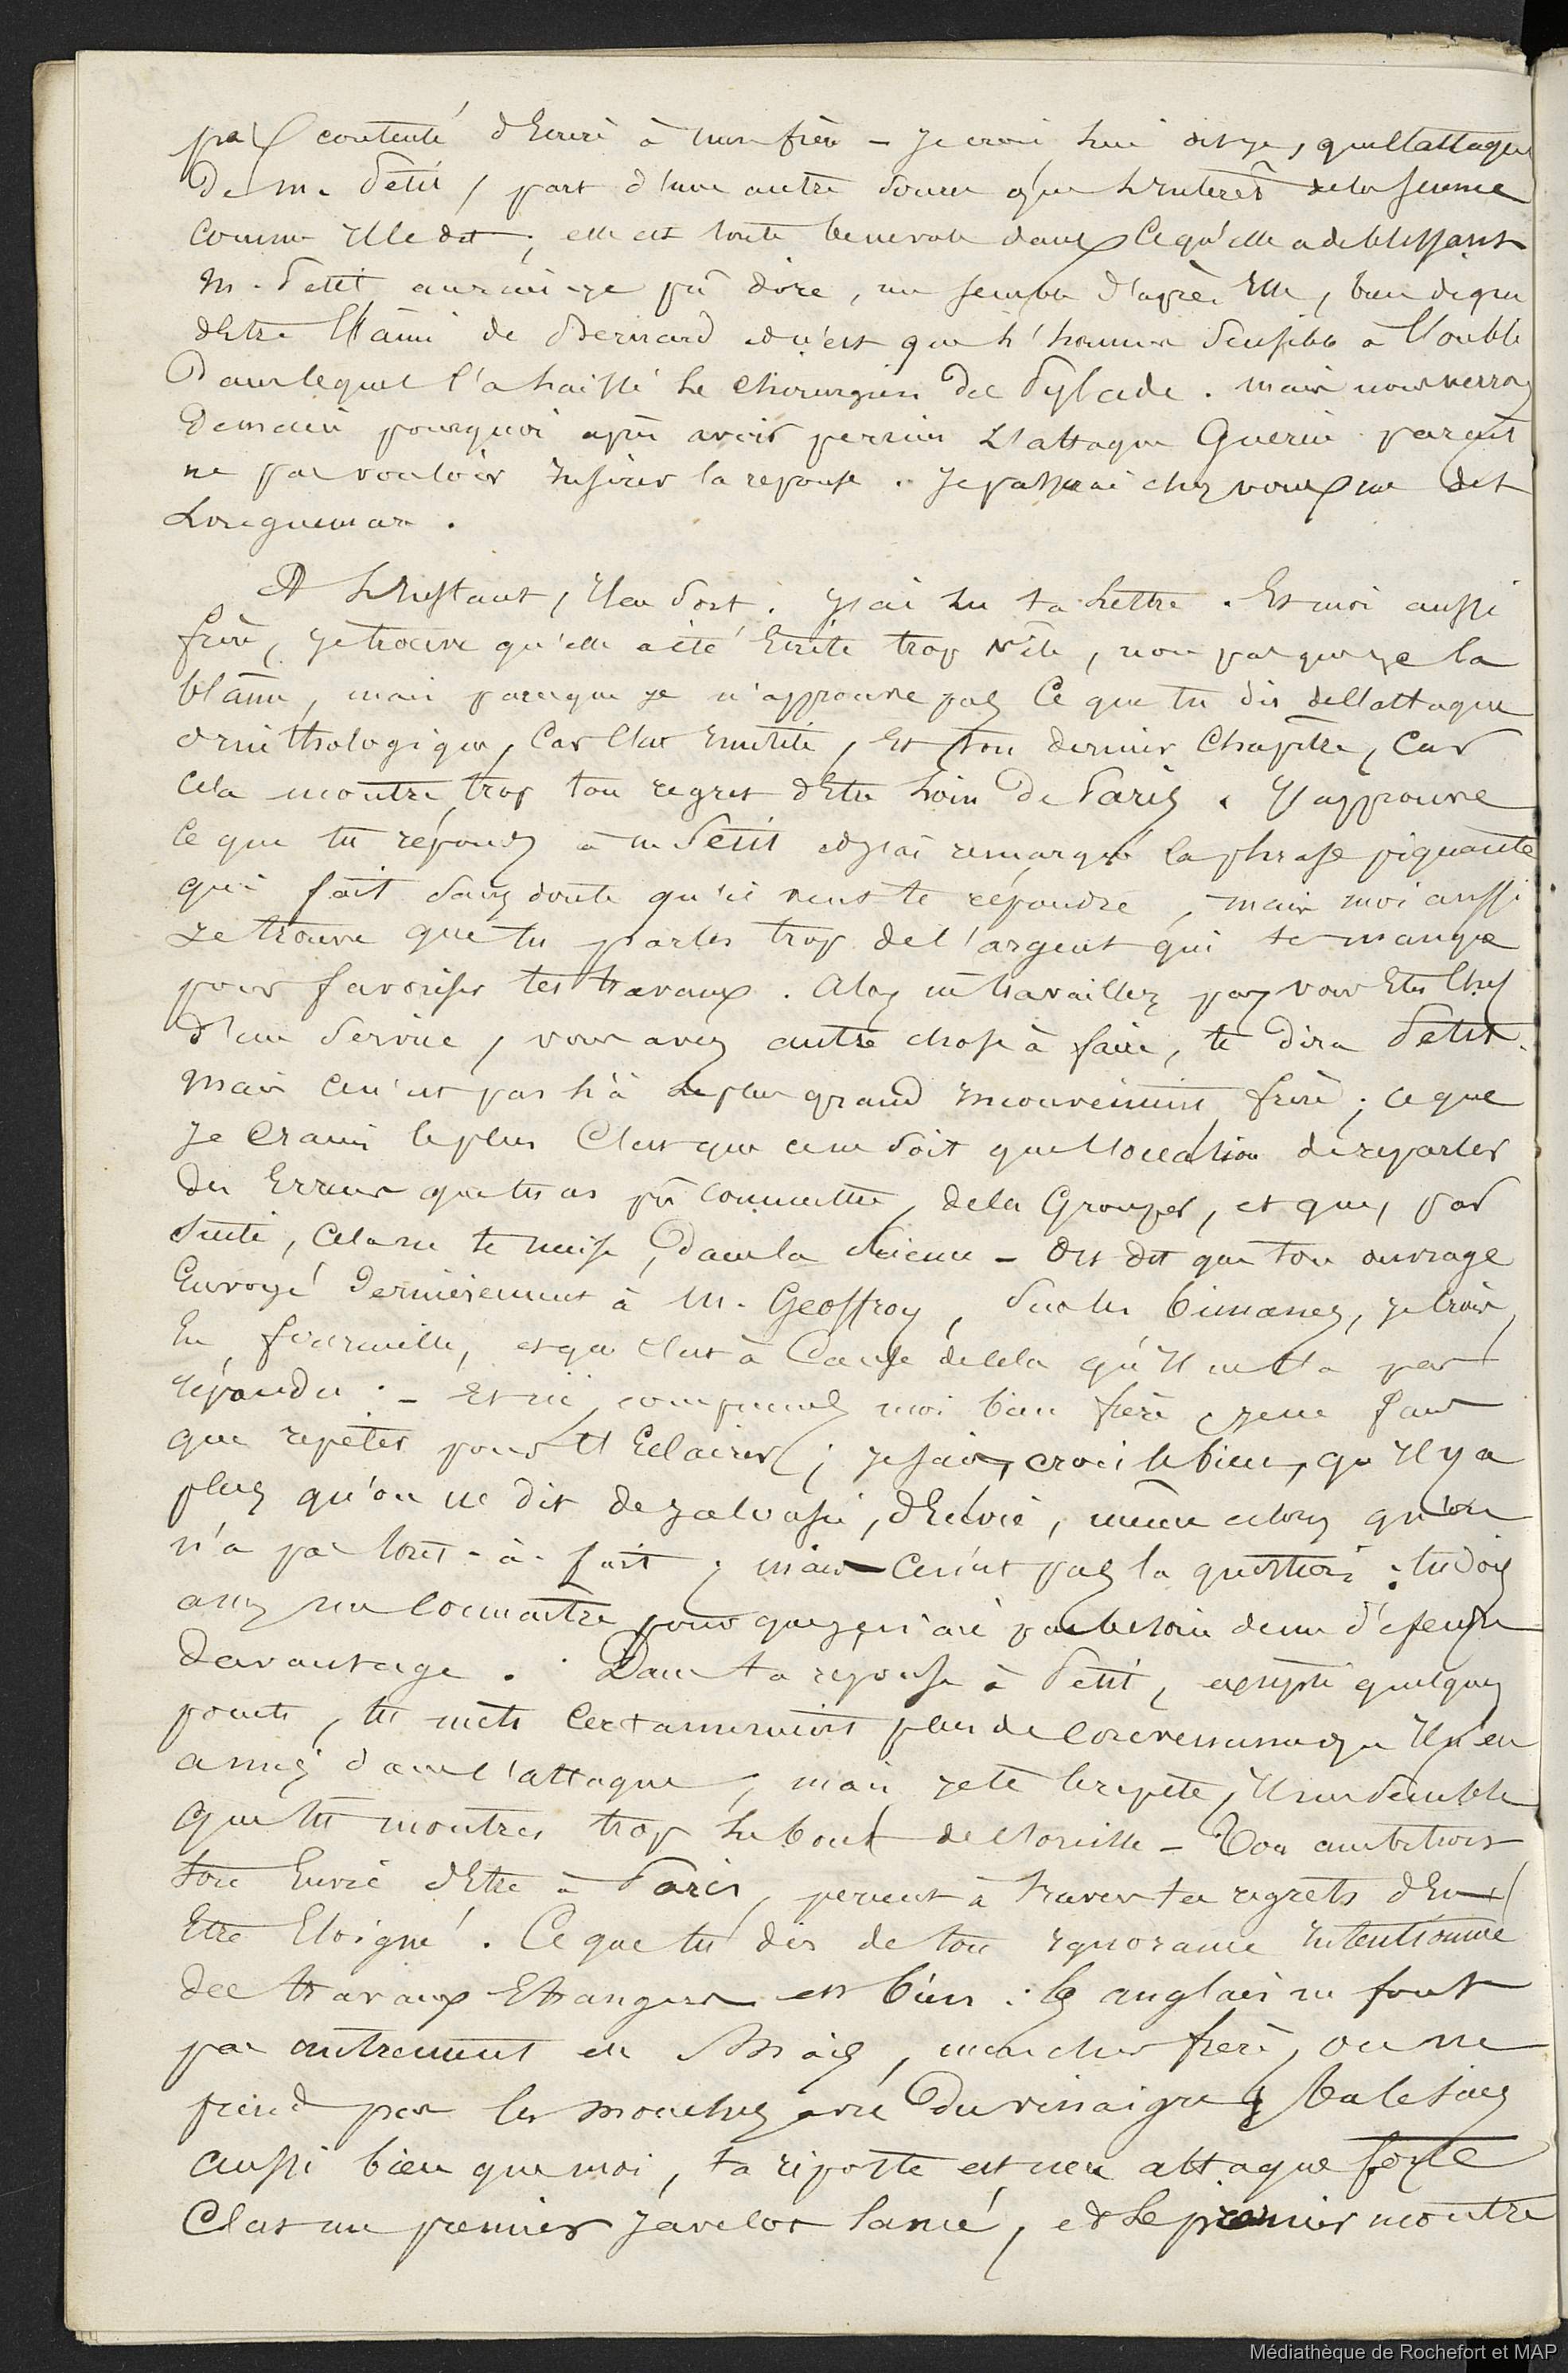 pas contenté d'Ecrire à mon frère – je crois lui dis-je, que l'attaque
De m. Petit, part d'une autre source que l'Interêt de la science
comme Il le dit; elle est toute benevole dans ce qu'elle a de blessant
M. Petit aurais-je pû dire, me semble d'après Elle, bien digne
d'Etre l'ami de Bernard et n'est que l'homme sensible à l'oubli
Dans lequel l'a laissé le chirurgien De Pylade. mais nous verrons
Demain pourquoi après avoir permis L'attaque Guerin parait
ne pas vouloir Insérer la reponse. Je passerai chez vous me dit
Longuemar.
A L'Instant, Il en sort. J'ai lu ta lettre. Et moi aussi
frère, je trouve qu'elle a été Ecrite trop vite, non pas que je la
blâme, mais parceque je n'approuve pas ce que tu dis de l'attaque
ornithologique, car c'est inutile, Et ton dernier chapitre, car
cela montre trop ton regret d'Etre loin De Paris. J'approuve
ce que tu réponds à m Petit et j'ai remarqué la phrase piquante
qui fait sans doute qu'il veut te répondre, mais moi aussi
je trouve que tu parles trop de l'argent qui te manque
pour favoriser tes travaux. Alors ne travaillez pas vous Etes chef
d'un service, vous avez autre chose à faire, te dira Petit.
Mais ce n'est pas là le plus grand Inconvénient frère; ce que
je crains le plus c'est que ce ne soit que l'occasion de reparler
des Erreurs que tu as pû commettre, de les Grouper, et que, par
suite, cela ne te nuise, dans la science – On dit que ton ouvrage
Envoyé Dernièrement à M. Geoffroy, sur les bimanes, je crois,
En fourmille, et que c'est à cause de cela qu'Il ne t'a pas
répondu. – Et ici, comprends moi bien frère, je ne fais
que repéter pour t'Eclairer; je sais, crois le bien, qu'Il y a
plus qu'on ne dit de jalousie, d'Envie, même alors qu'on
n'a pas tout-à-fait; mais ce n'est pas la question: tu dois
assez me connaitre pour que je n'aie pas besoin de me défendre
Davantage. Dans ta reponse à Petit, excepté quelques
points, tu mets certainement plus de convenance qu'Il n'en
a mis dans l'attaque; mais je te le repete, Il me semble
que tu montres trop le bout de l'oreille – Ton ambition
ton Envie d'Etre à Paris, percent à travers tes regrets d'En
Etre Eloigné. Ce que tu dis de ton Ignorance Intentionnée
des travaux Etrangers est bien: les anglais ne font
pas autrement Mais, mon cher frère, on ne
prend pas les mouches avec Du vinaigre & tu le sais
aussi bien que moi, ta riposte est une attaque forte
C'est un premier javelot lancé, et le premier montre